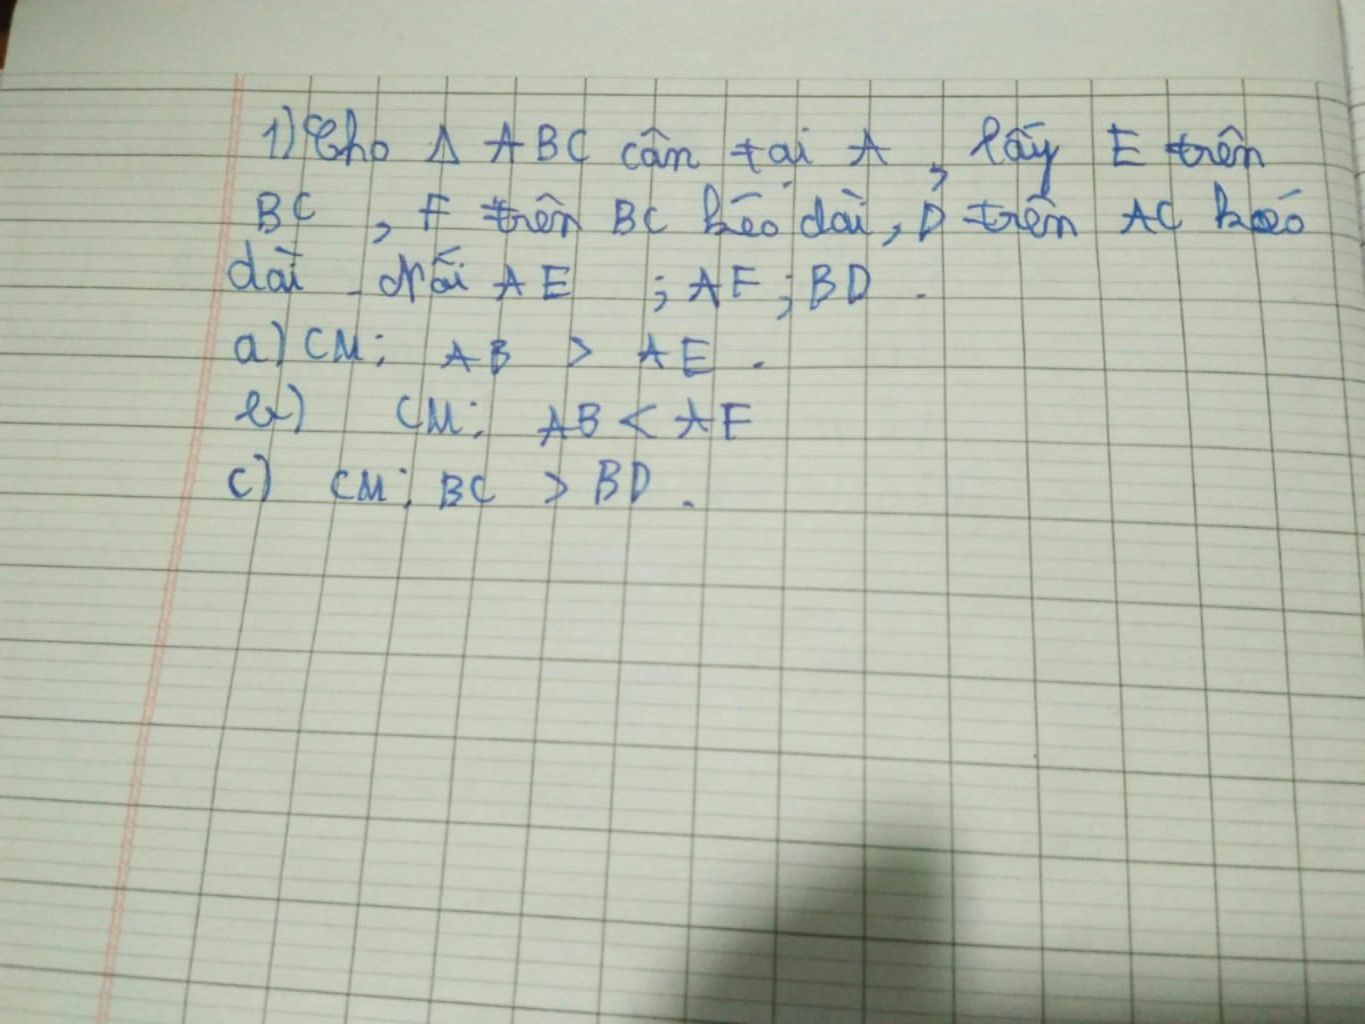 1) Cho Δ ABC cân tại A, lấy E trên
BC, F trên BC kéo dài, D trên AC kéo
dài. Nối AE ; AF ; BD.
a) CM: AB > AE.
b) CM: AB < AF
c) CM: BC > BD.